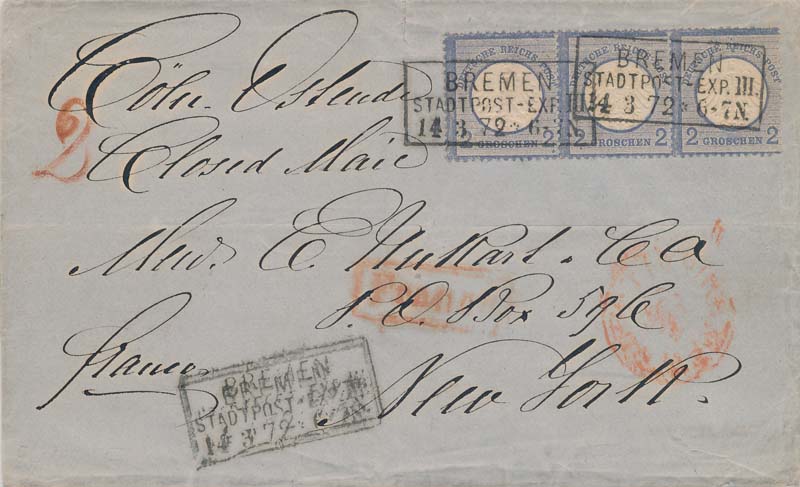 DEUTSCHE REICHS-POST DEUTSCHE REICHS-POST DEUTSCHE REICHS-POST
2 GROSCHEN 2 2 GROSCHEN 2 2 GROSCHEN 2
BREMEN
STADTPOST-EXP. III.
14 3 72 * 6-7N.
BREMEN
STADTPOST-EXP. III.
14 3 72 * 6-7N.
Cöln Ostende
2
Closed Mail
E
P.O. Box 596
franco
New York.
BREMEN
STADTPOST-EXP. III.
14 3 72 * 6-7N.